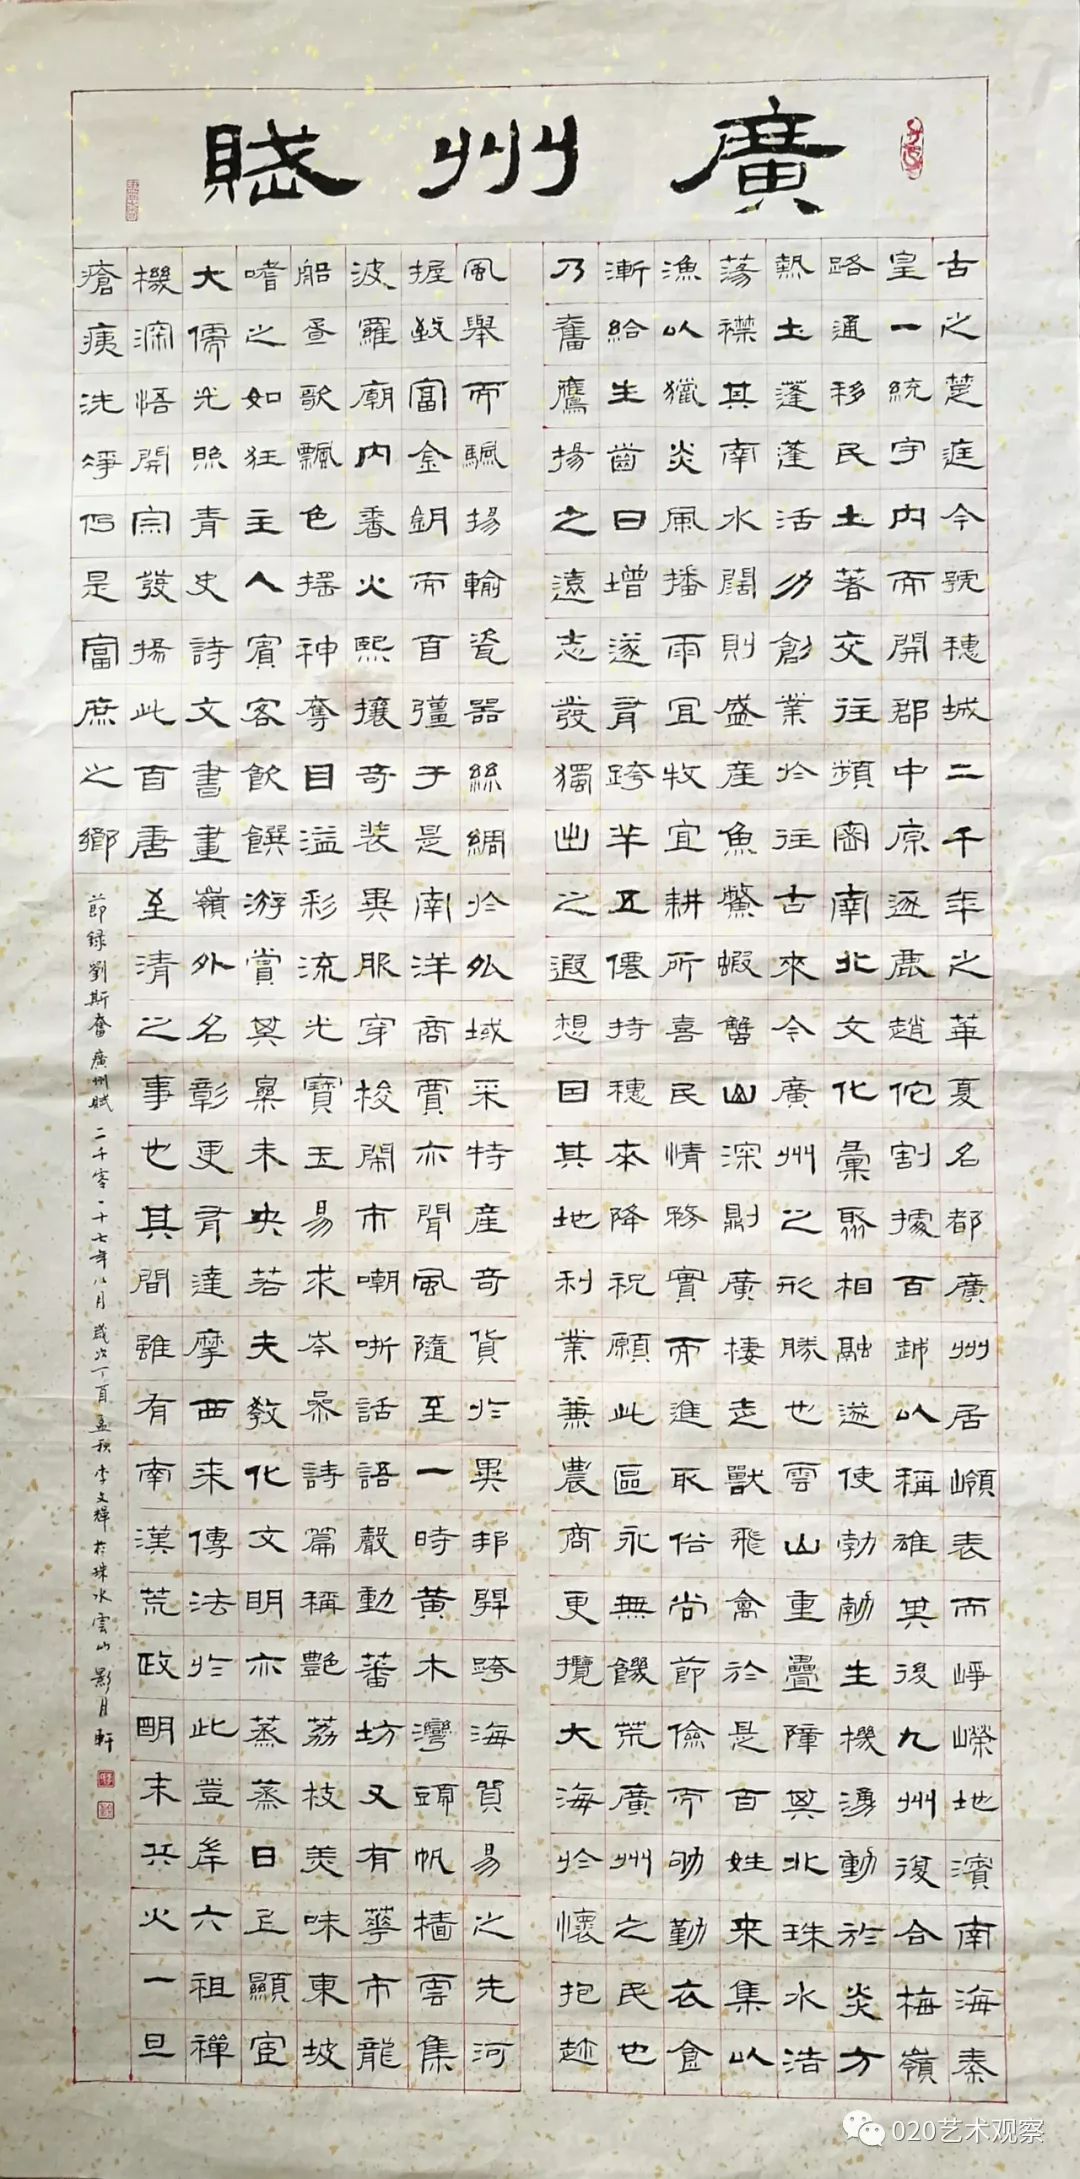 廣州賦
古之楚庭今號穗城二千年之華夏名都廣州居嶺表而崢嶸地濱南海秦
皇一統宇内而開郡中原逐鹿趙佗割據百越以稱雄其後九州復合梅嶺
路通移民土著交往頻密南北文化彙聚相融遂使勃勃生機湧動於炎方
熱土蓬蓬活力創業於往古來今廣州之形勝也雲山重疊障其北珠水浩
蕩襟其南水闊則盛産魚鱉蝦蟹山深則廣棲走獸飛禽於是百姓来集以
漁以獵炎風播雨宜牧宜耕所喜民情務實而進取俗尚節儉而劬勤衣食
漸給生齒日增遂有跨羊五僊持穗來降祝願此區永無饑荒廣州之民也
乃奮鷹揚之遠志發獨出之遐想因其地利業兼農商更攬大海於懷抱趁
風舉而颿揚輸瓷器絲綢於外域采特産奇貨於異邦肇跨海貿易之先河
握致富金鑰而百彊于是南洋商賈亦聞風隨至一時黃木灣頭帆檣雲集
波羅廟内香火熙攘奇裝異服穿梭鬧市嘲哳話語聲動蕃坊又有華市龍
船晝歌飄色搖神奪目溢彩流光寶玉易求岑參詩篇稱艷荔枝美味東坡
嗜之如狂主人賓客飲饌游賞其樂未央若夫教化文明亦蒸蒸日上顯宦
大儒光照青史詩文書畫嶺外名彰更有達摩西来傳法於此豈岸六祖禪
機深悟開宗發揚此皆唐至清之事也其間雖有南漢荒政明末兵火一旦
瘡痍洗淨仍是富庶之鄉
節録劉斯奮廣州賦 二千零一十七年八月歲次丁酉孟秋李文輝於珠水雲山影月軒
020艺术观察